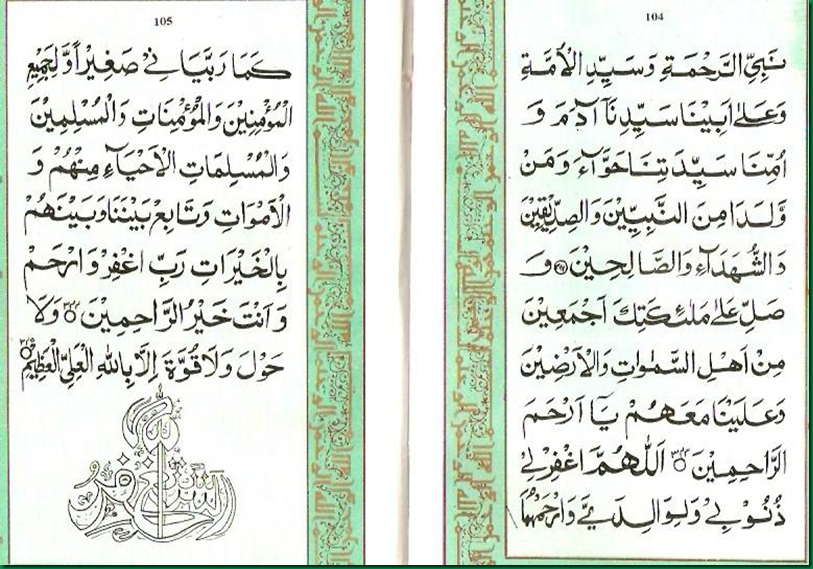 104
نَبِيِّ الرَّحْمَةِ وَسَيِّدِ الْاُمَّةِ
وَعَلٰى اَبِيْنَا سَيِّدِنَآ اٰدَمَ وَ
اُمِّنَا سَيِّدَتِنَا حَوَّآءَ وَمَنْ
وَّلَدَا مِنَ النَّبِيِّيْنَ وَالصِّدِّيْقِيْنَ
وَالشُّهَدَآءِ وَالصَّالِحِيْنَ وَ
صَلِّ عَلٰى مَلٰٓئِكَتِكَ اَجْمَعِيْنَ
مِنْ اَهْلِ السَّمٰوَاتِ وَالْاَرْضِيْنَ
وَعَلَيْنَا مَعَهُمْ يَآ اَرْحَمَ
الرَّاحِمِيْنَ اَللّٰهُمَّ اغْفِرْ لِيْ
ذُنُوْبِيْ وَلِوَالِدَيَّ وَارْحَمْهُمَا
105
كَمَا رَبَّيَانِيْ صَغِيْرًا وَّلِجَمِيْعِ
الْمُؤْمِنِيْنَ وَالْمُؤْمِنَاتِ وَالْمُسْلِمِيْنَ
وَالْمُسْلِمَاتِ الْاَحْيَآءِ مِنْهُمْ وَ
الْاَمْوَاتِ وَتَابِعْ بَيْنَنَا وَبَيْنَهُمْ
بِالْخَيْرَاتِ رَبِّ اغْفِرْ وَارْحَمْ
وَاَنْتَ خَيْرُ الرَّاحِمِيْنَ وَلَا
حَوْلَ وَلَا قُوَّةَ اِلَّا بِاللّٰهِ الْعَلِيِّ الْعَظِيْمِ